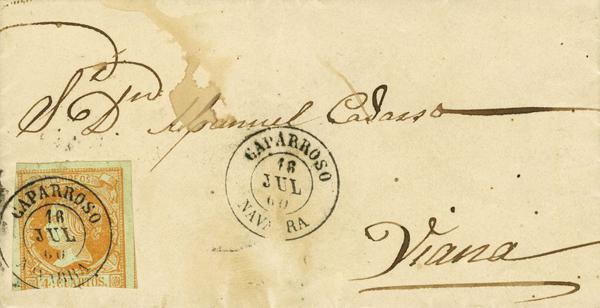 S.r D.n Manuel Cadarso
CAPARROSO
16
JUL
60
NAVARRA
CAPARROSO
16
JUL
60
NAVARRA
4 CUARTOS.
Viana